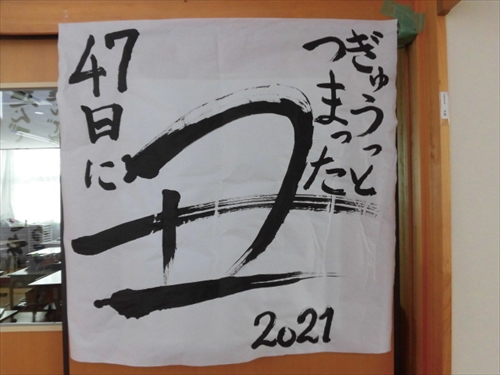 ぎゅうっと
つまった
丑
47日に
2021